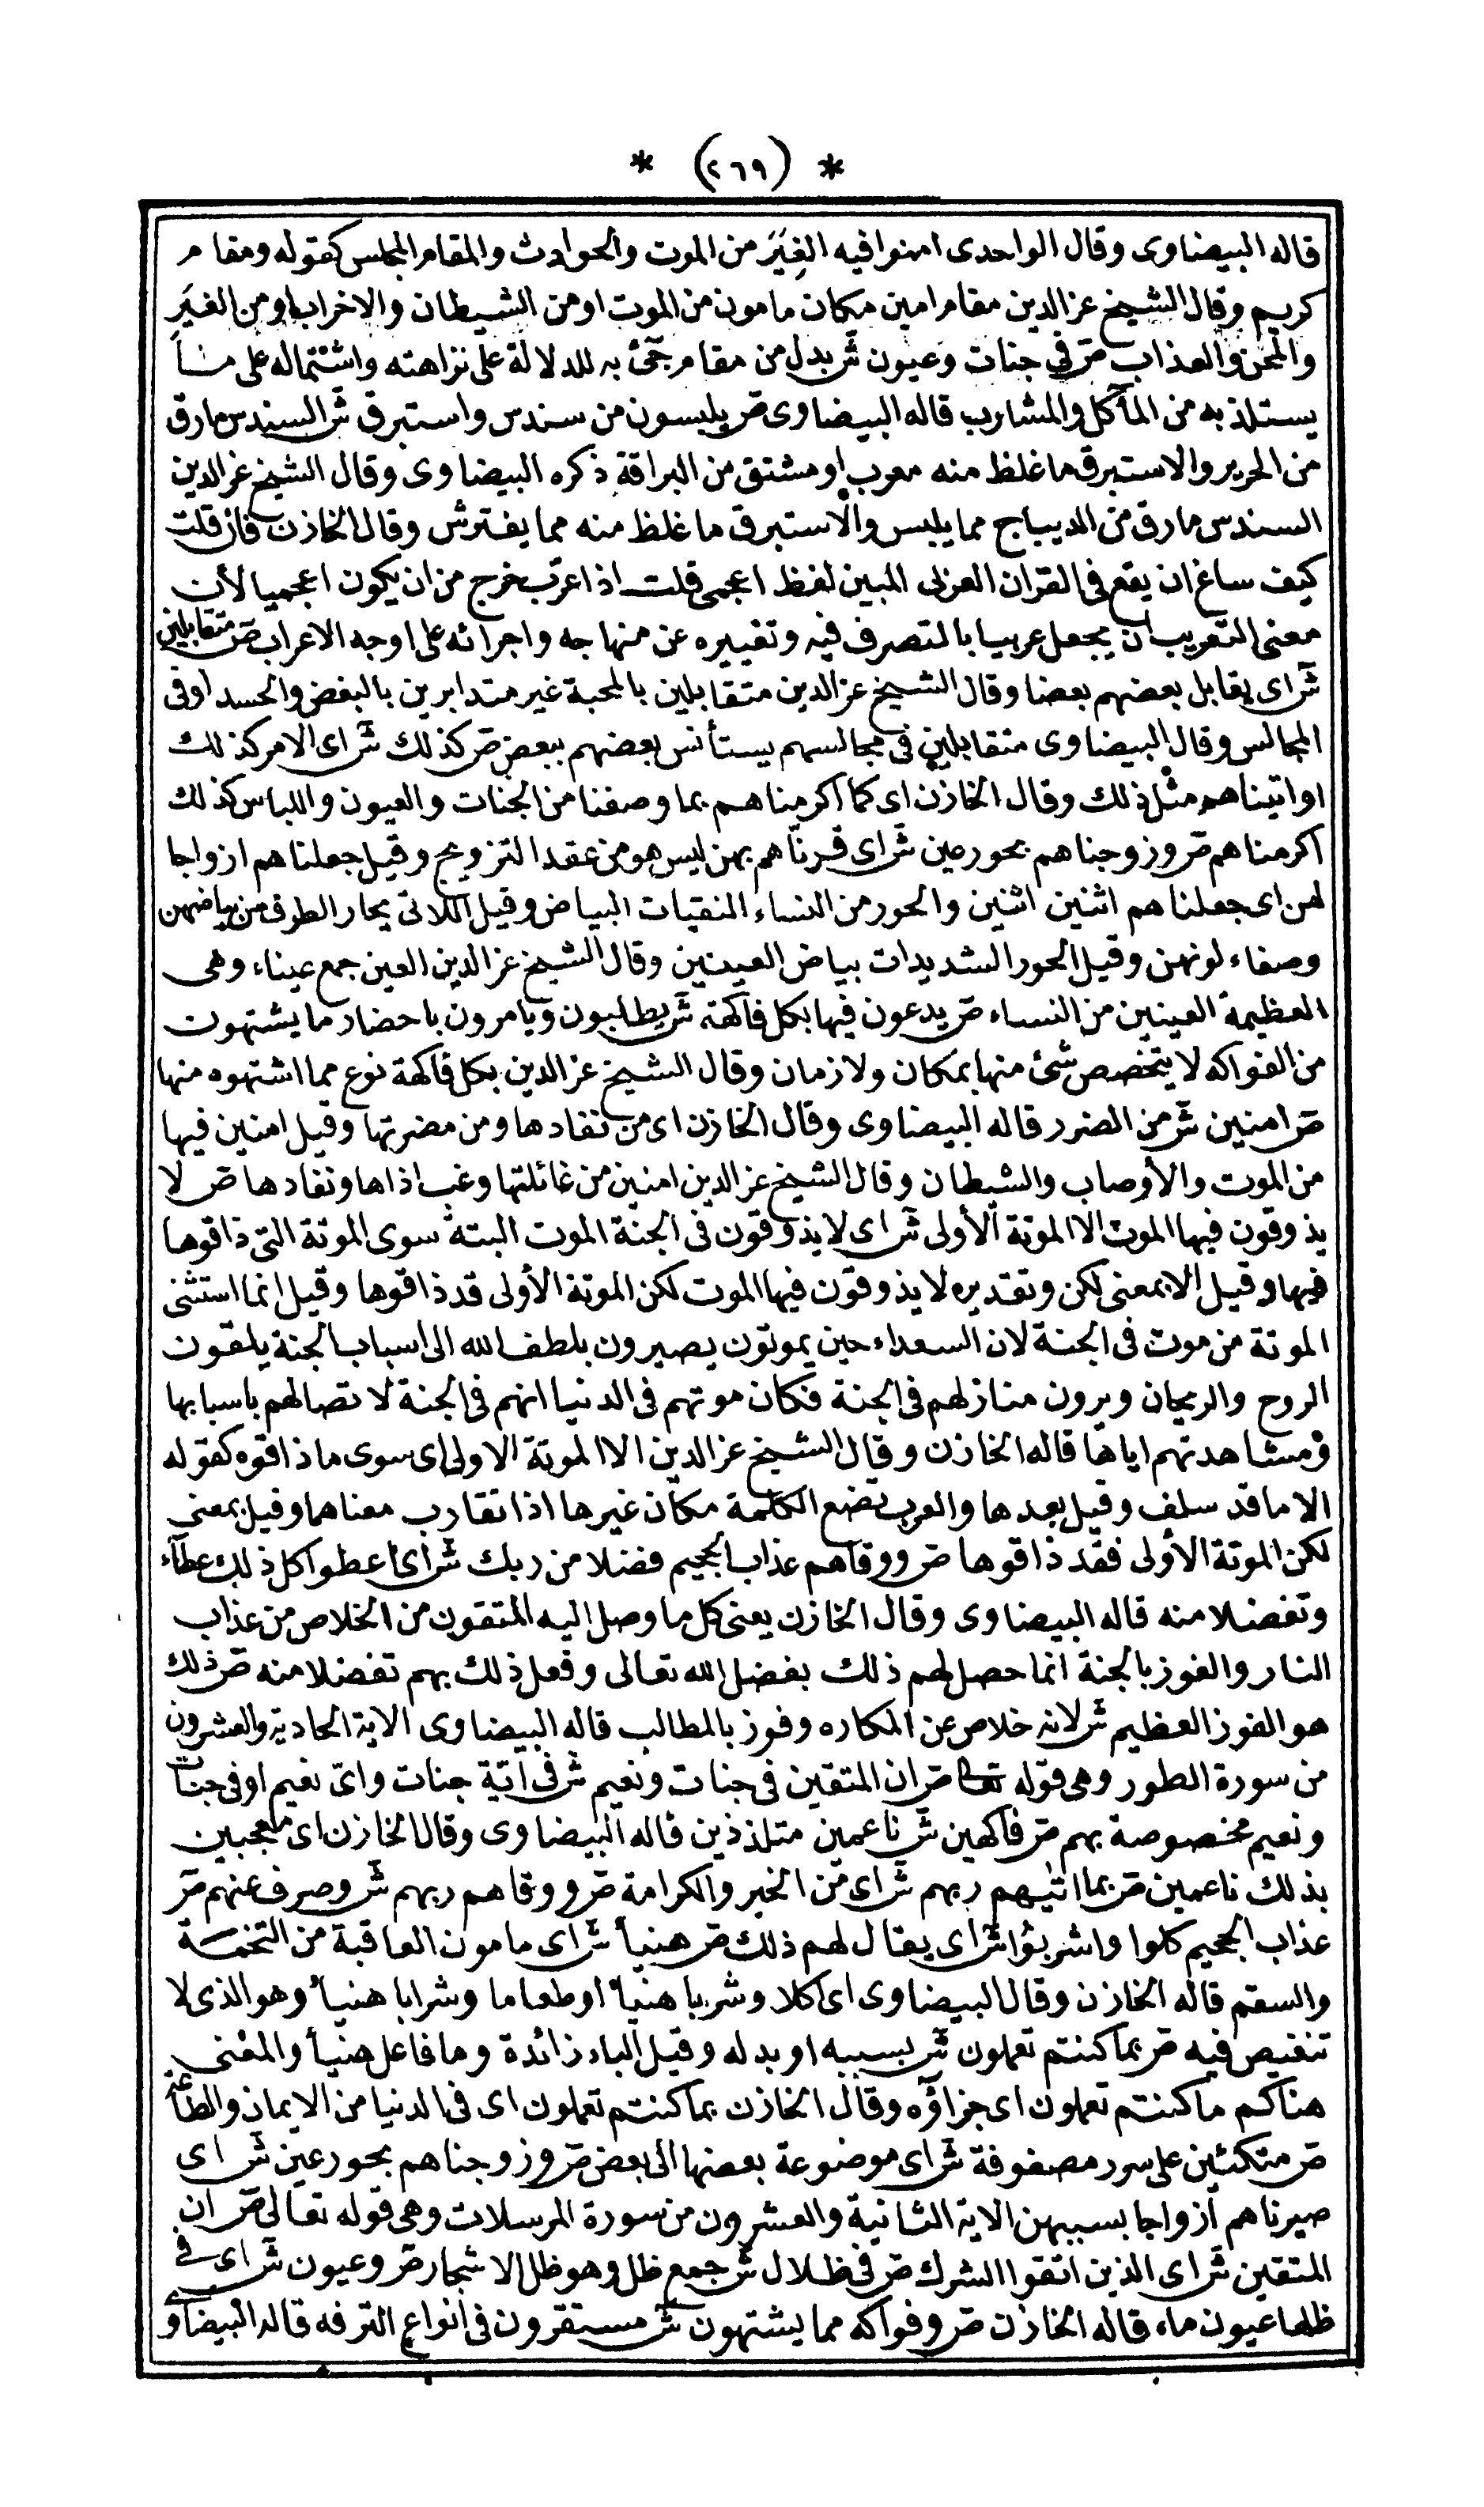 * (٢٦٩) *
قاله البيضاوى وقال الواحدى امنوا فيه الغِيَرَ من الموت والحوادث والمقام المجلس كقوله ومقام
كريم وقال الشيخ عز الدين مقام امين مكان مامون من الموت او من الشيطان والاخراب او من الغِيَرِ
والمحن والعذاب صَ في جنات وعيون شَ بدل من مقام جئ به للدلالة على نزاهته واشتماله على ما
يستلذ به من المآكل والمشارب قاله البيضاوى صَ يلبسون من سندس واستبرق شَ السندس مارق
من الحرير والاستبرق ما غلظ منه معرب او مشتق من البراقة ذكره البيضاوى وقال الشيخ عز الدين
السندس مارق من الديباج مما يلبس والاستبرق ما غلظ منه مما يفترش وقال الخازن فان قلت
كيف ساغ ان يقع فى القران العربى المبين لفظ اعجمى قلت اذا عرّب خرج من ان يكون اعجميا لأن
معنى التعريب ان يجعل عربيا بالتصرف فيه وتغييره عن منهاجه واجرائه على اوجه الاعراب صَ متقابلين
شَ اى يقابل بعضهم بعضا وقال الشيخ عز الدين متقابلين بالمحبة غير متدابرين بالبغض والحسد او فى
المجالس وقال البيضاوى متقابلين فى مجالسهم يستأنس بعضهم ببعض صَ كذلك شَ اى الامر كذلك
او اتيناهم مثل ذلك وقال الخازن اى كما اكرمناهم بما وصفنا من الجنات والعيون واللباس كذلك
اكرمناهم صَ وزوجناهم بحور عين شَ اى قرنّاهم بهن ليس هو من عقد التزويج وقيل جعلناهم ازواجا
لهن اى جعلناهم اثنين اثنين والحور من النساء النقيات البياض وقيل اللاتى يحار الطرف من بياضهن
وصفاء لونهن وقيل الحور الشديدات بياض العينين وقال الشيخ عز الدين العين جمع عيناء وهى
العظيمة العينين من النساء صَ يدعون فيها بكل فاكهة شَ يطلبون ويامرون باحضار ما يشتهون
من الفواكه لا يتخصص شئ منها بمكان ولا زمان وقال الشيخ عز الدين بكل فاكهة نوع مما اشتهوه منها
صَ امنين شَ من الضرر قاله البيضاوى وقال الخازن اى من نفادها ومن مضرتها وقيل امنين فيها
من الموت والأوصاب والشيطان وقال الشيخ عز الدين امنين من غائلتها وغب اذاها ونفادها صَ لا
يذوقون فيها الموت الا الموتة الأولى شَ اى لا يذوقون فى الجنة الموت البتة سوى الموتة التى ذاقوها
فيها وقيل الا بمعنى لكن وتقديره لا يذوقون فيها الموت لكن الموتة الأولى قد ذاقوها وقيل انما استثنى
الموتة من موت فى الجنة لان السعداء حين يموتون يصيرون بلطف الله الى اسباب الجنة يلقون
الروح والريحان ويرون منازلهم فى الجنة فكان موتهم فى الدنيا انهم فى الجنة لاتصالهم باسبابها
ومشاهدتهم اياها قاله الخازن وقال الشيخ عز الدين الا الموتة الاولى اى سوى ما ذاقوه كقوله
الا ما قد سلف وقيل بعدها والعرب تضع الكلمة مكان غيرها اذا تقارب معناهما وقيل بمعنى
لكن الموتة الأولى فقد ذاقوها صَ ووقاهم عذاب الجحيم فضلا من ربك شَ اى اعطوا كل ذلك عطاء
وتفضلا منه قاله البيضاوى وقال الخازن يعنى كل ما وصل اليه المتقون من الخلاص من عذاب
النار والفوز بالجنة انما حصل لهم ذلك بفضل الله تعالى وفعل ذلك بهم تفضلا منه صَ ذلك
هو الفوز العظيم شَ لانه خلاص عن المكاره وفوز بالمطالب قاله البيضاوى الاية الحادية والعشرون
من سورة الطور وهى قوله تعالى صَ ان المتقين فى جنات ونعيم شَ فى اتية جنات واىّ نعيم او فى جنات
ونعيم مخصوصة بهم صَ فاكهين شَ ناعمين متلذذين قاله البيضاوى وقال الخازن اى معجبين
بذلك ناعمين صَ بما اتيهم ربهم شَ اى من الخير والكرامة صَ ووقاهم ربهم شَ وصرف عنهم صَ
عذاب الجحيم كلوا واشربوا شَ اى يقال لهم ذلك صَ هنيأ شَ اى مامون العاقبة من التخمة
والسقم قاله الخازن وقال البيضاوى اى اكلا وشربا هنيأ او طعاما وشرابا هنيأ وهو الذى لا
تنغيص فيه صَ بما كنتم تعملون شَ بسببه او بدله وقيل الباء زائدة وما فاعل هنيأ والمعنى
هناكم ما كنتم تعملون اى جزاؤه وقال الخازن بما كنتم تعملون اى فى الدنيا من الايمان والطاعة
صَ متكئين على سرر مصفوفة شَ اى موضوعة بعضها الى بعض صَ وزوجناهم بحور عين شَ اى
صيرناهم ازواجا بسببهن الاية الثانية والعشرون من سورة المرسلات وهى قوله تعالى صَ ان
المتقين شَ اى الذين اتقوا الشرك صَ فى ظلال شَ جمع ظل وهو ظل الاشجار صَ وعيون شَ اى فى
ظلها عيون ماء قاله الخازن صَ وفواكه مما يشتهون شَ مستقرون فى انواع الترفه قاله البيضاوى